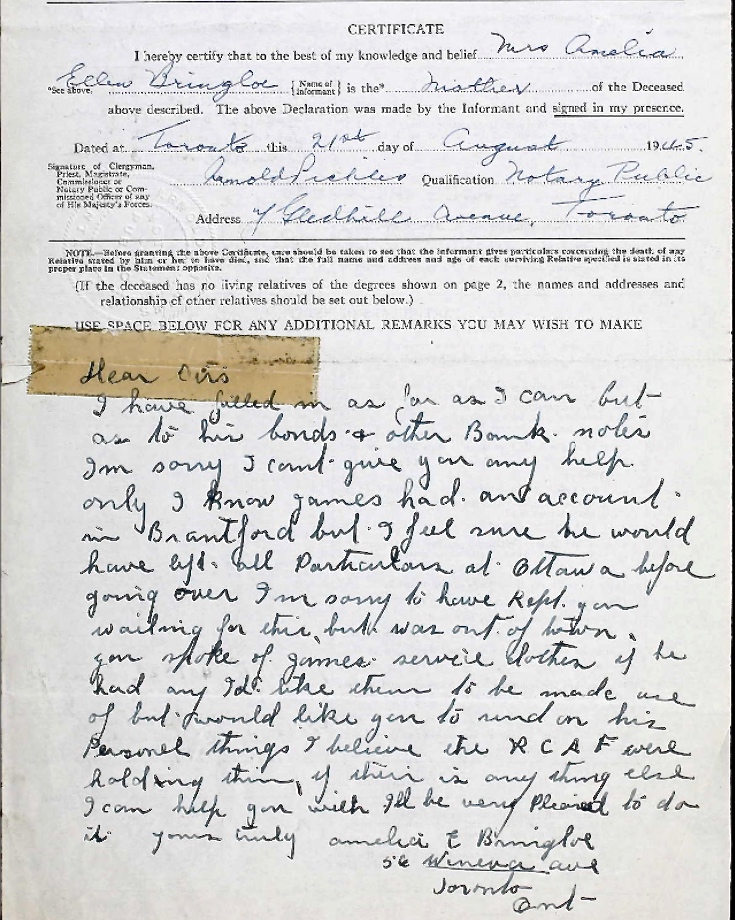 CERTIFICATE
I hereby certify that to the best of my knowledge and belief Mrs Amelia
Ellen Bringloe {Name of Informant} is the* Mother of the Deceased
*See above.
above described. The above Declaration was made by the Informant and signed in my presence.
Dated at Toronto this 21st day of August 1945.
Signature of Clergyman,
Priest, Magistrate,
Commissioner or
Notary Public or Com-
missioned Officer of any
of His Majesty's Forces.
Arnold Pickles Qualification Notary Public
Address 7 Gledhill Avenue, Toronto
NOTE.—Before granting the above Certificate, care should be taken to see that the informant gives particulars concerning the death of any
Relative stated by him or her to have died, and that the full name and address and age of each surviving Relative specified is stated in its
proper place in the Statement opposite.
(If the deceased has no living relatives of the degrees shown on page 2, the names and addresses and
relationship of other relatives should be set out below.)
USE SPACE BELOW FOR ANY ADDITIONAL REMARKS YOU MAY WISH TO MAKE
Dear Sirs
I have filled in as far as I can but
as to his bonds & other Bank notes
I'm sorry I cant give you any help
only I know James had an account
in Brantford but I feel sure he would
have left all Particulars at Ottawa before
going over I'm sorry to have Kept you
waiting for this, but was out of town.
you spoke of James service clothes if he
had any I'd like them to be made use
of but would like you to send on his
Personel things I believe the R C A F were
holding them, if their is any thing else
I can help you with I'll be very Pleased to do
it yours truly Amelia E Bringloe
56 Wineva ave
Toronto
Ont